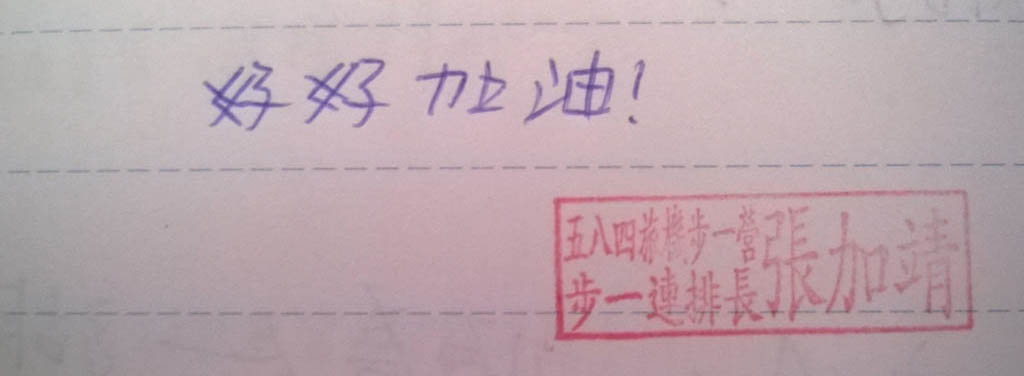 好好加油!
五八四旅機步一營
步一連排長張加靖